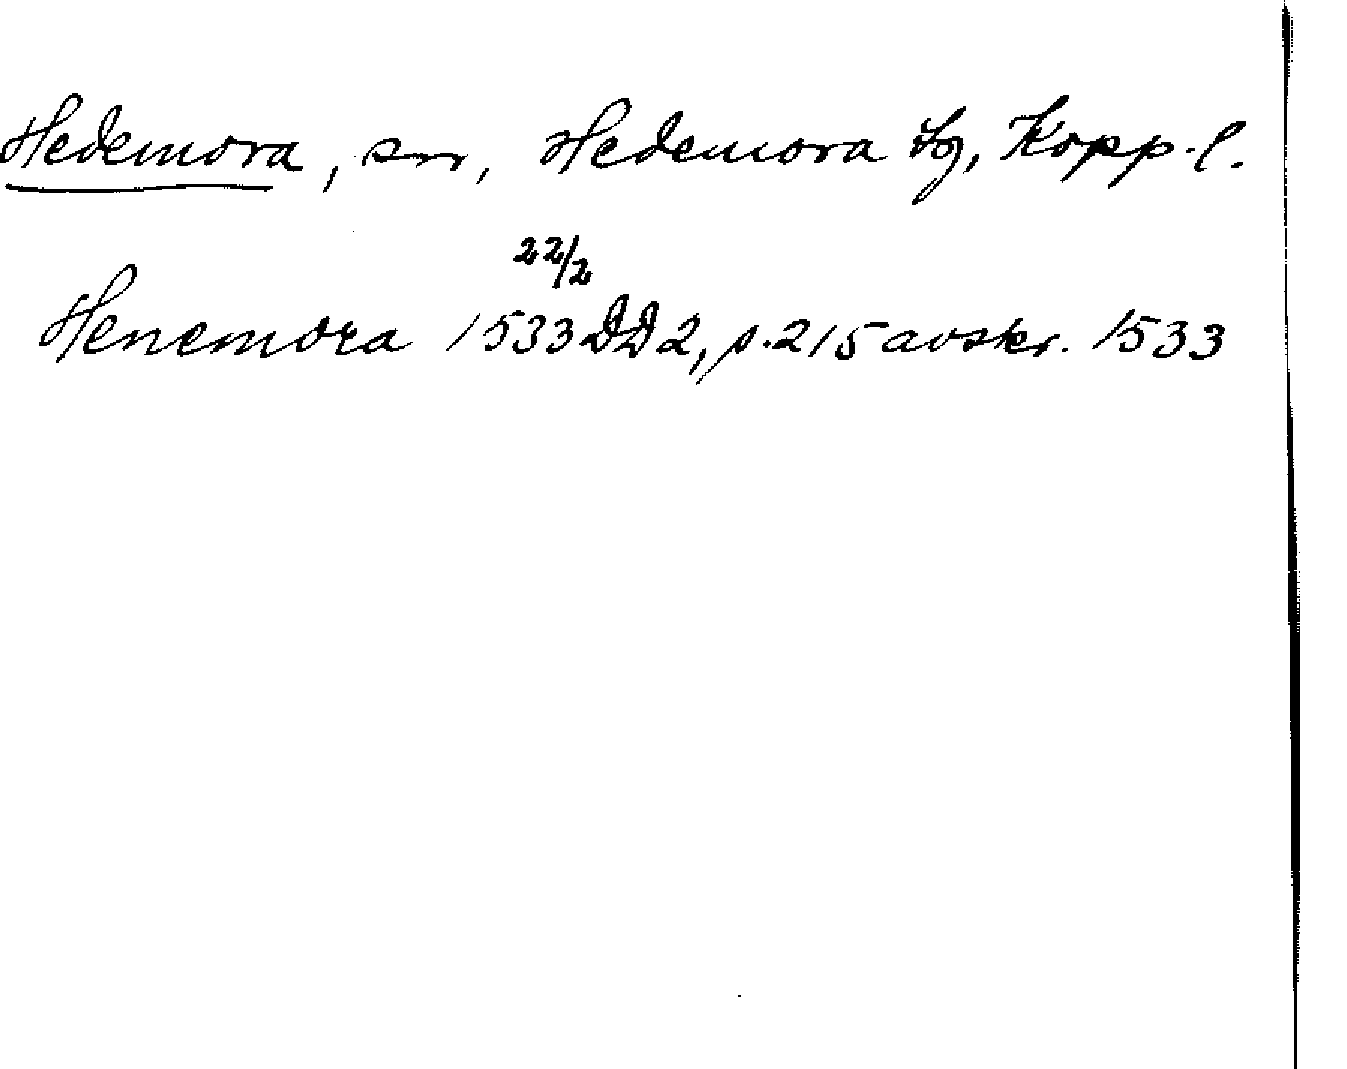 Hedemora, sn, Hedemora tg, Kopp. l.
22/2
Henemora 1533 DD2, s. 215 avskr. 1533